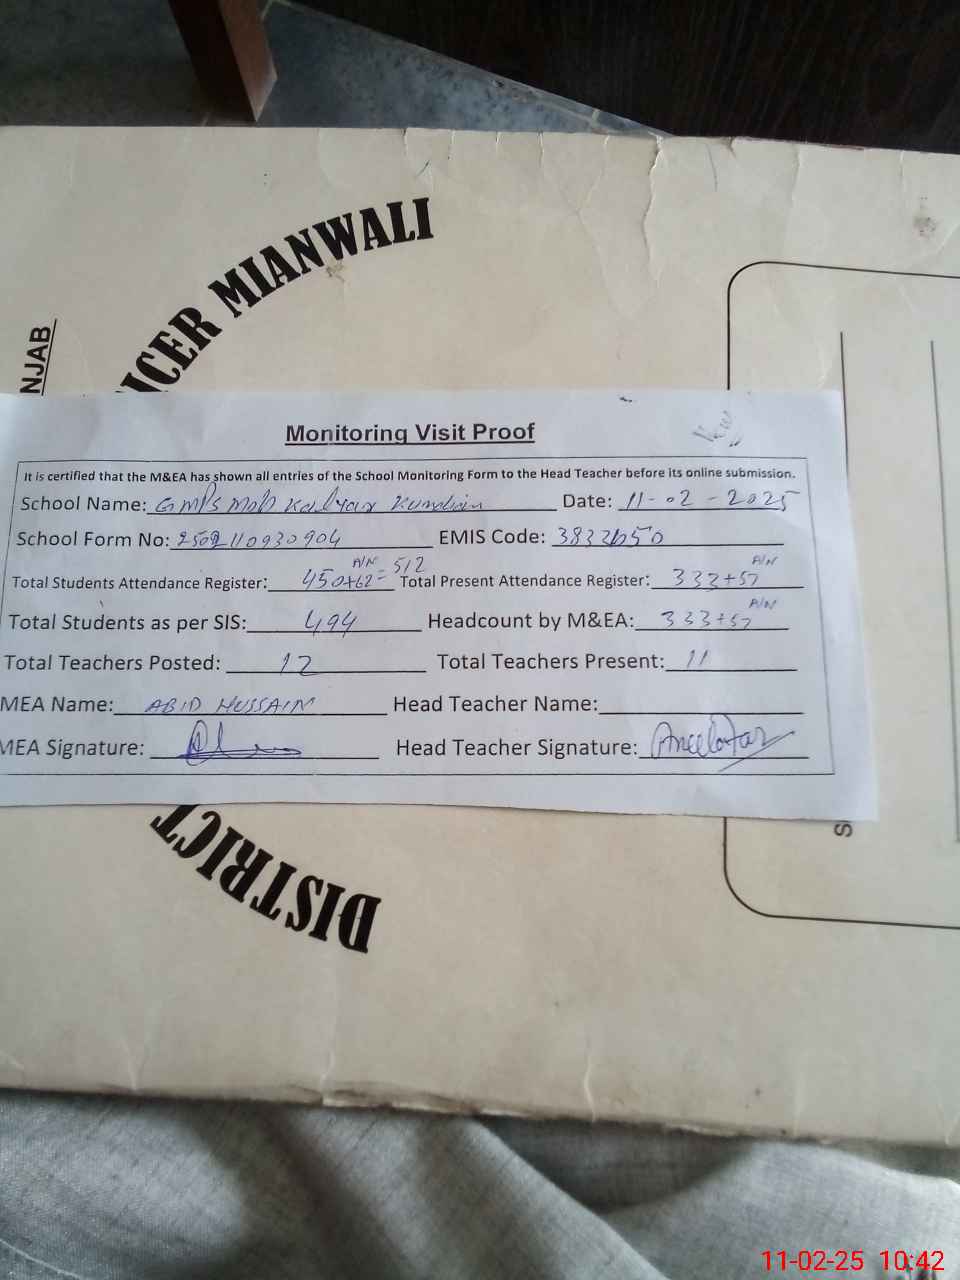 NJAB
ICER MIANWALI
Monitoring Visit Proof
It is certified that the M&EA has shown all entries of the School Monitoring Form to the Head Teacher before its online submission.
School Name: GMPS Kundian Date: 11-02-2025
School Form No: 2502110930904 EMIS Code:
Total Students Attendance Register: 450+62 A/N = 512 Total Present Attendance Register: 333+57 A/N
Total Students as per SIS: 494 Headcount by M&EA: 333+57 A/N
Total Teachers Posted: 12 Total Teachers Present: 11
MEA Name: ABID HUSSAIN Head Teacher Name:
MEA Signature: Head Teacher Signature:
DISTRICT
11-02-25 10:42